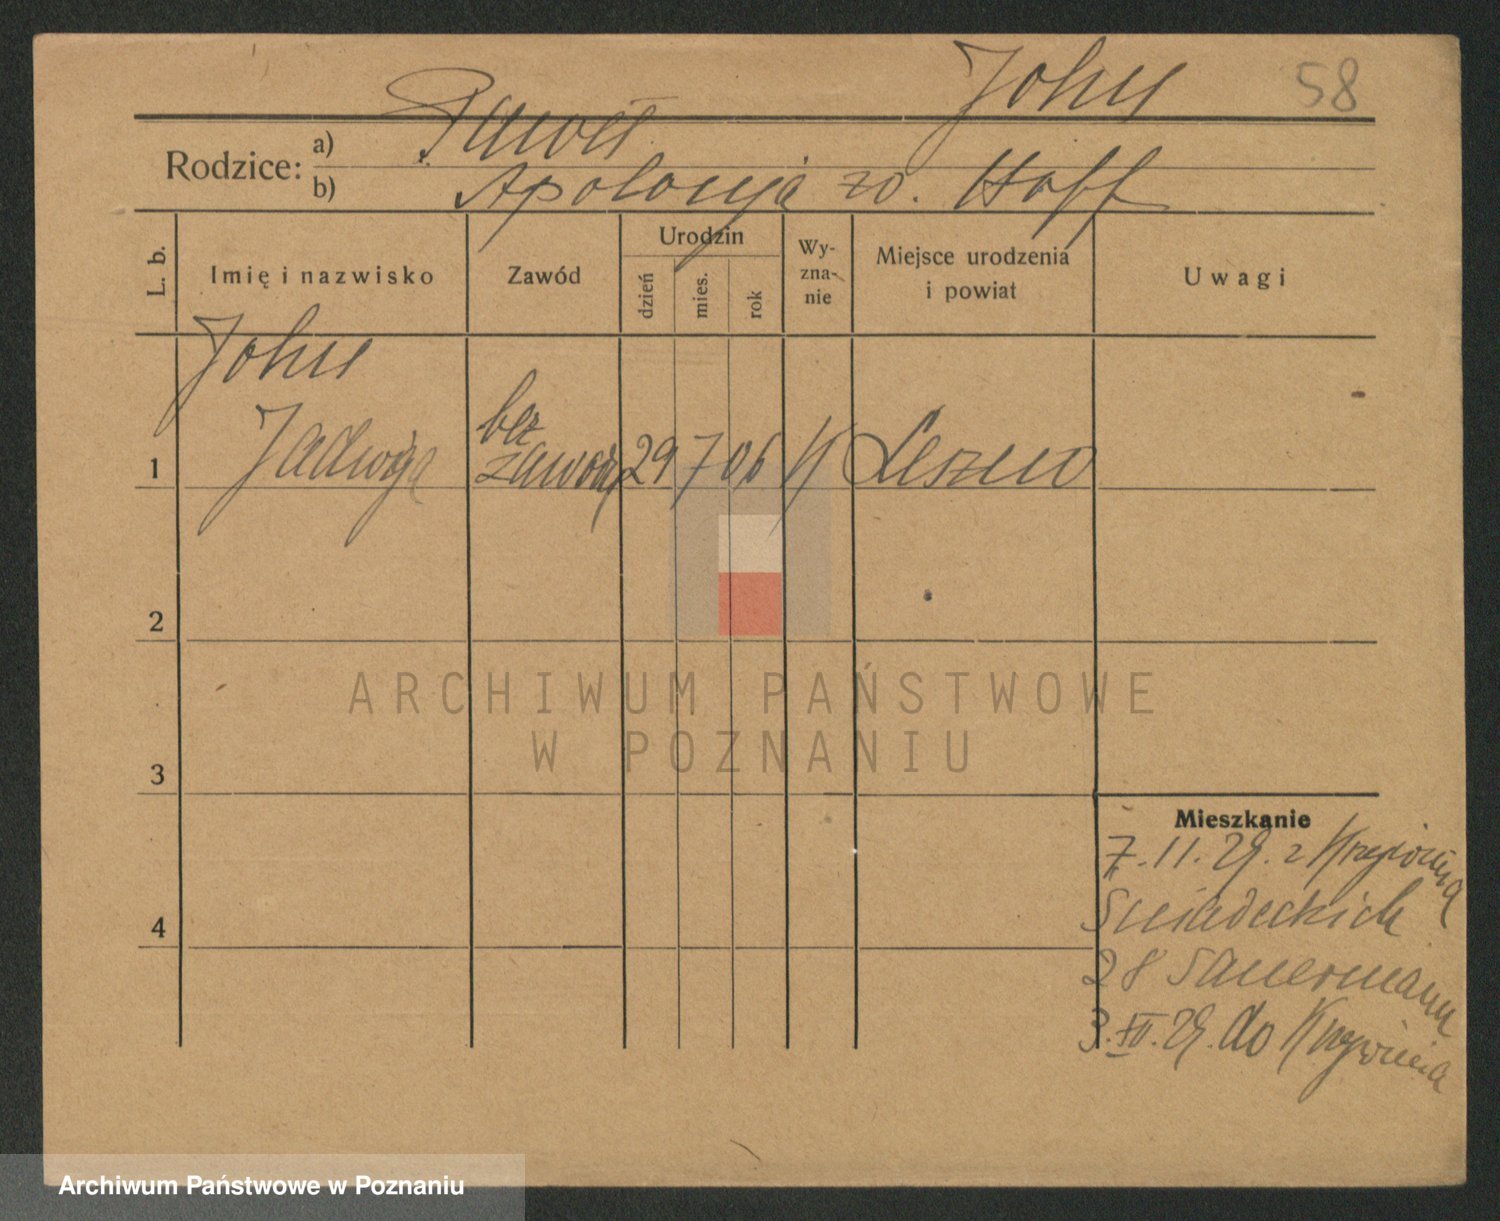 John
58
Paweł
Rodzice: a)
b) Apolonja zo. Hoff
L. b.
Imię i nazwisko
Zawód
Urodzin
dzień
mies.
rok
Wy-
zna-
nie
Miejsce urodzenia
i powiat
Uwagi
John
1 Jadwiga bez zawodu 29 7 06 K Leszno
2
3
4
ARCHIWUM PAŃSTWOWE
W POZNANIU
Mieszkanie
7.11.29. z Krzywinia
Śniadeckich
28 Sauermann
3.XII.29. do Krzywinia
Archiwum Państwowe w Poznaniu